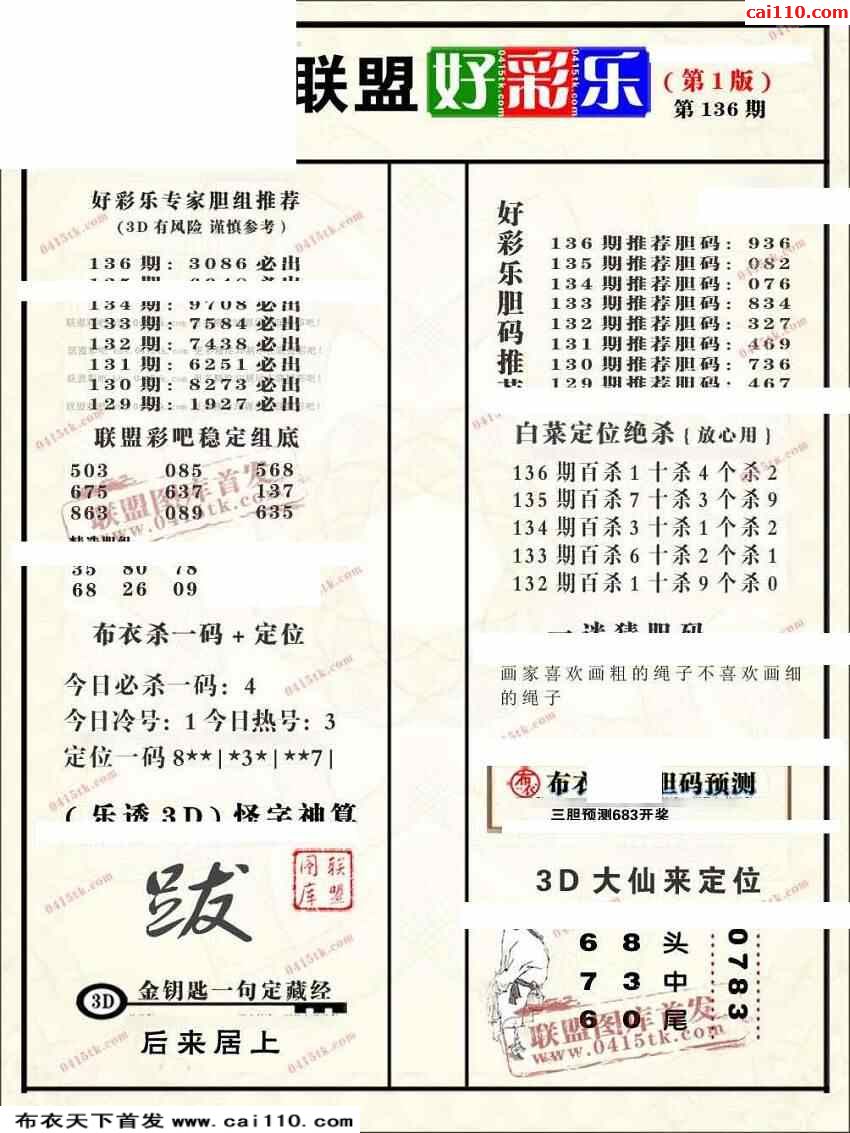 cai110.com
联盟好彩乐
(第1版)
第136期
好彩乐专家胆组推荐
(3D有风险 谨慎参考)
136期: 3086必出
134期: 9708必出
133期: 7584必出
132期: 7438必出
131期: 6251必出
130期: 8273必出
129期: 1927必出
联盟彩吧稳定组底
503 085 568
675 637 137
863 089 635
35 80 78
68 26 09
布衣杀一码+定位
今日必杀一码: 4
今日冷号: 1 今日热号: 3
定位一码 8**|*3*|**7|
(乐透3D)怪字神算
跋
联盟图库
3D 金钥匙一句定藏经
后来居上
好彩乐胆码推荐
136期推荐胆码: 936
135期推荐胆码: 082
134期推荐胆码: 076
133期推荐胆码: 834
132期推荐胆码: 327
131期推荐胆码: 469
130期推荐胆码: 736
129期推荐胆码: 467
白菜定位绝杀{放心用}
136期百杀1十杀4个杀2
135期百杀7十杀3个杀9
134期百杀3十杀1个杀2
133期百杀6十杀2个杀1
132期百杀1十杀9个杀0
一谜猜胆码
画家喜欢画粗的绳子不喜欢画细
的绳子
布衣 胆码预测
三胆预测683开奖
3D大仙来定位
6 8 头
7 3 中
6 0 尾
0783
联盟图库首发
www.0415tk.com
布衣天下首发 www.cai110.com